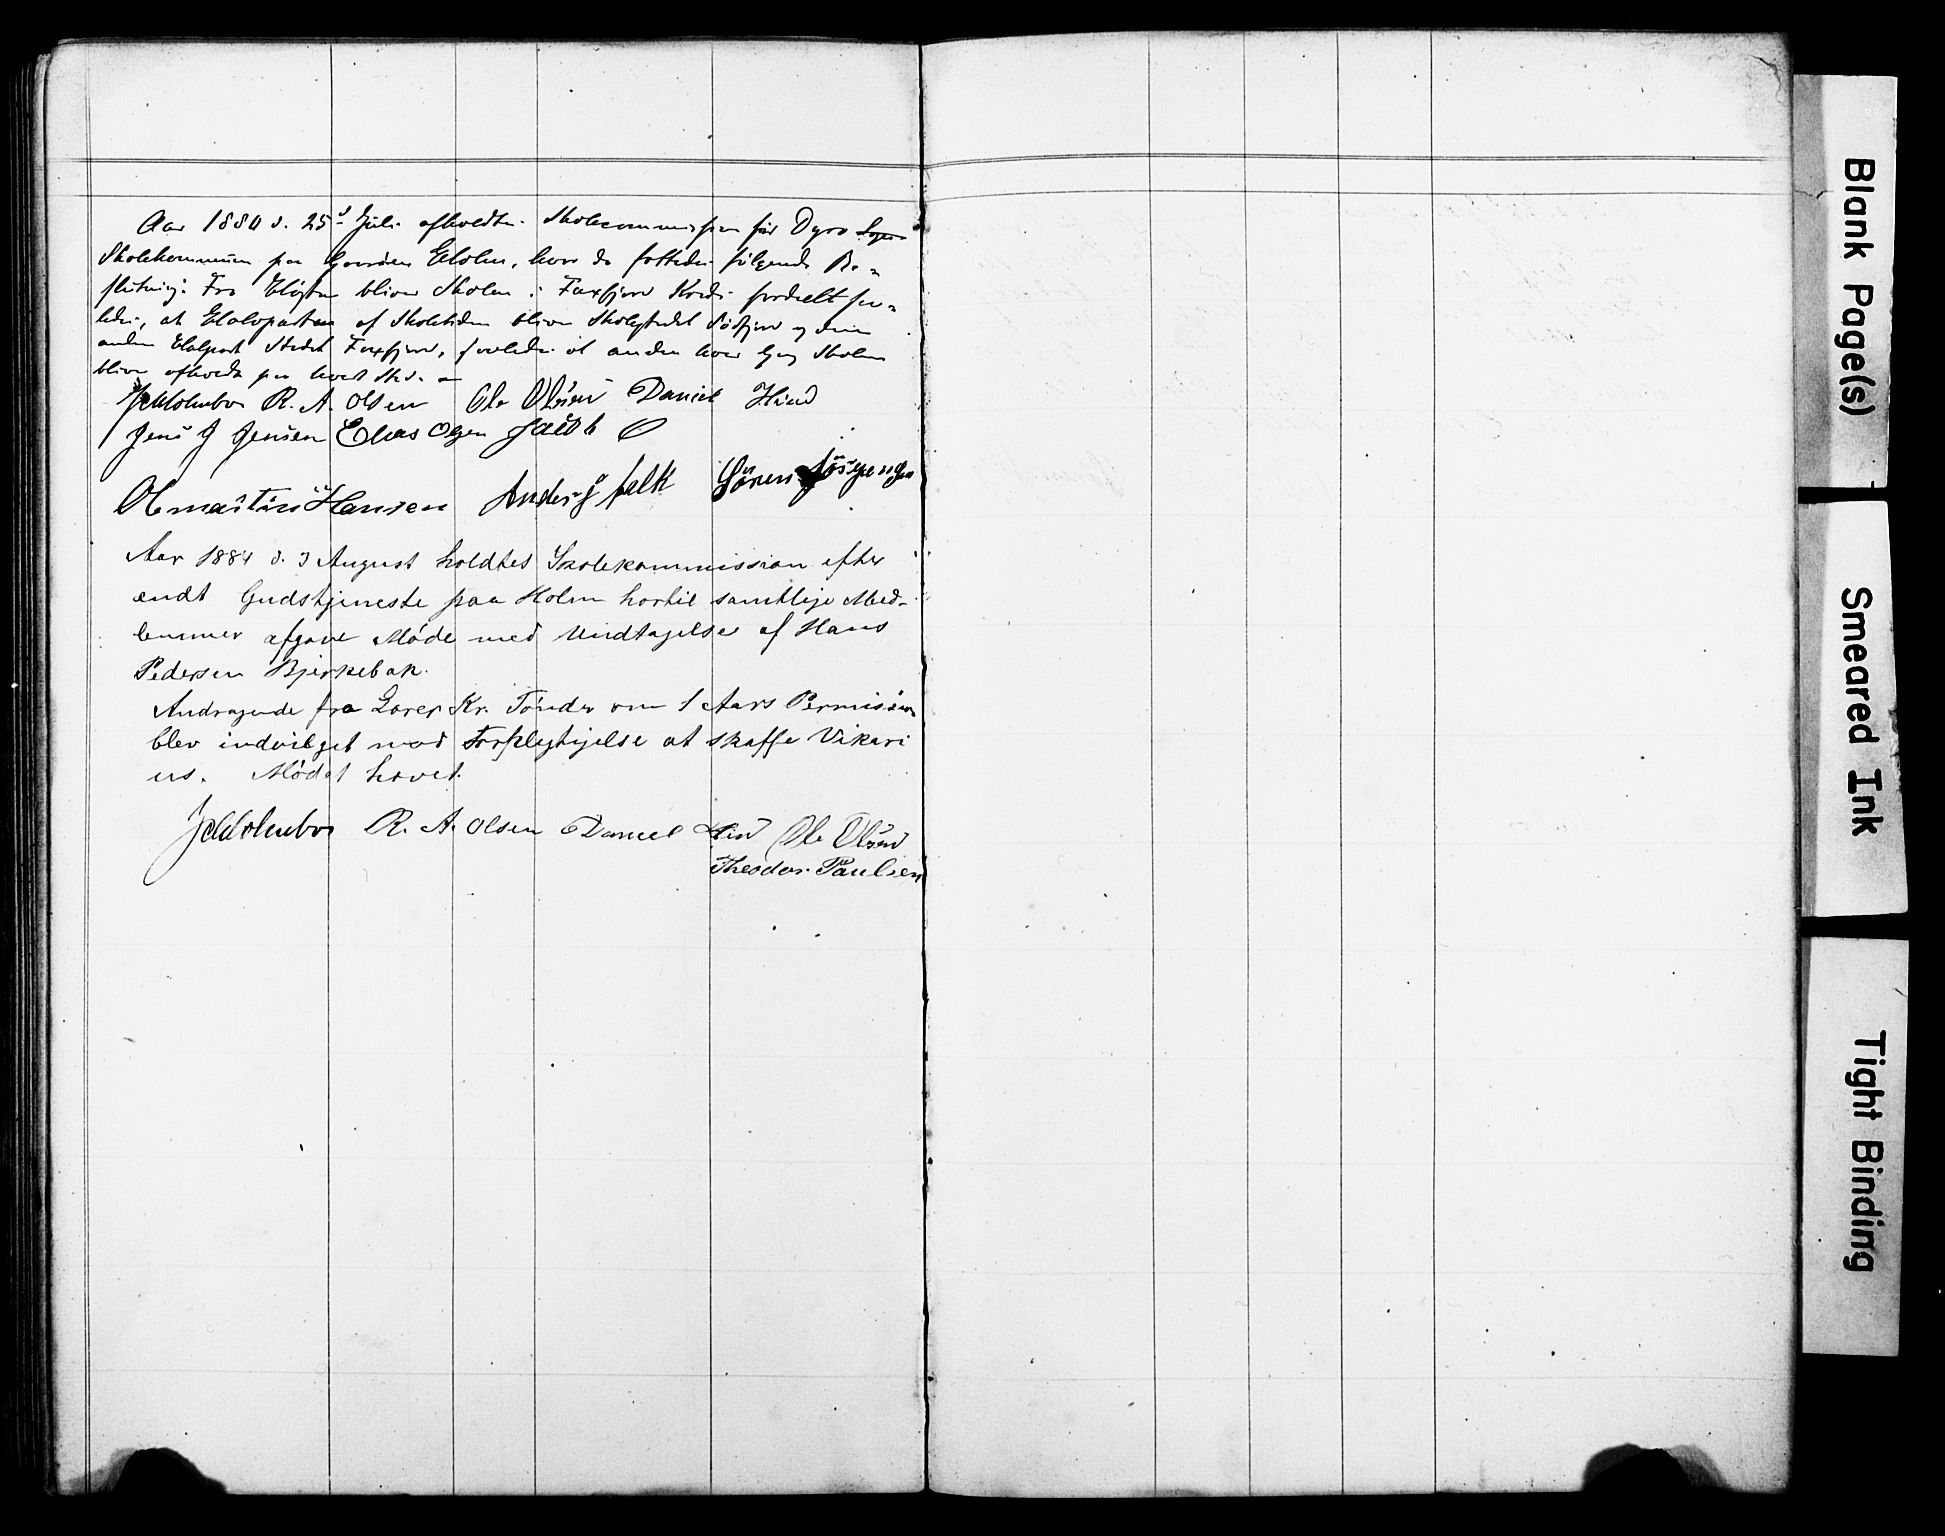 Aar 1880 d. 25d Juli afholdtes Skolecommission for Dyrø Sogn
Skolekommune paa Gaarden Holm, hvor da fattedes følgende Be-
slutning: Fra Høsten bliver Skolen i Faxfjord Kreds fordelt saa-
ledes, at Halvparten af Skoletiden bliver Skolestedet Sødfjord og den
anden Halpart Stedet Faxfjord, saaledes at anden hver Gang Skolen
bliver afholdt paa hvert Sted.
J Holmboe R. A. Olsen Ole Olsen Daniel Hind
Jens J Jensen Elias Olsen Jacob O
Ole Martin Hansen Anders J Falk Sören Jörgensen
Aar 1884 d. 3 August holdtes Skolekommission efter
endt Gudstjeneste paa Holm hortil samtlige Med-
lemmer afgave Møde med Undtagelse af Hans
Pedersen Bjerkebak.
Andragende fra Lærer Kr. Tønder om 1 Aars Permission
blev indvilget mod Forplegtijelse at skaffe Vikari
us. Mødet hævet.
J Holmboe R. A. Olsen Daniel Hind Ole Olsen
Theodor Paulsen
Blank Page(s)
Smeared Ink
Tight Binding